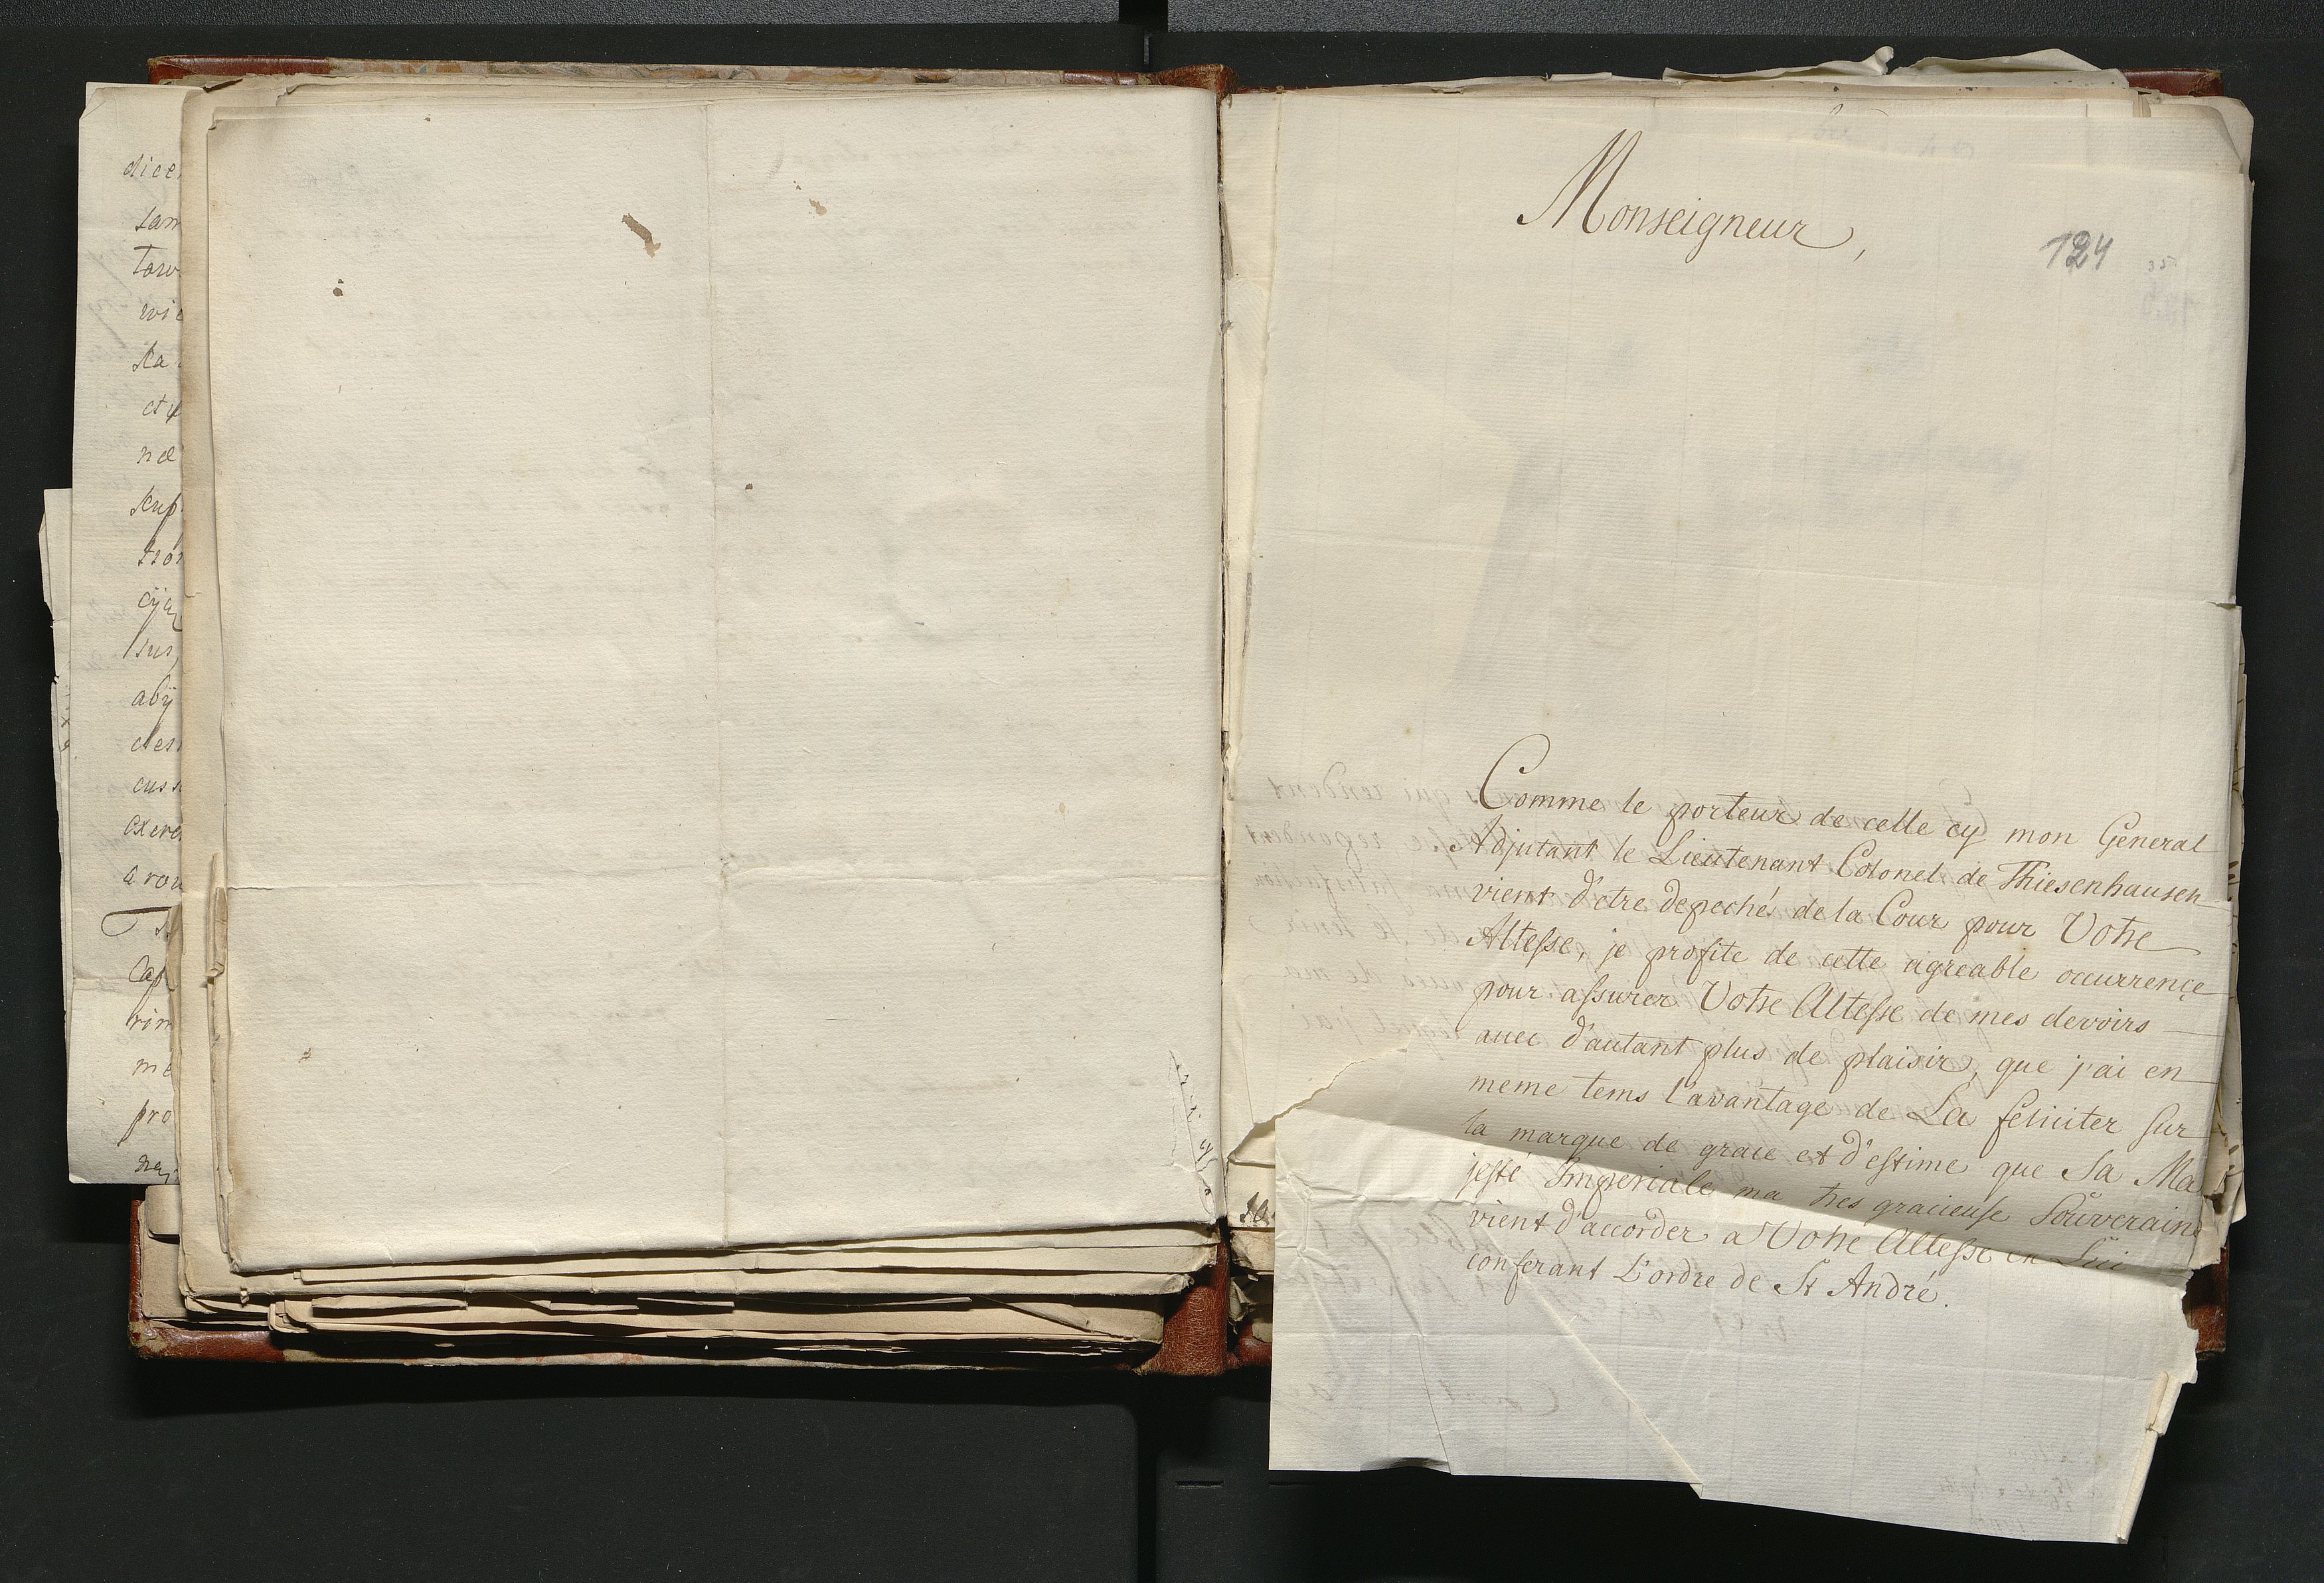 dice
tam
wie
ka
nœ
aby
cap
me
pro
Monseigneur,
124
Comme le porteur de celle cy mon General
Adjutant le Lieutenant Colonel de Thiesenhausen
vient d'etre depeché de la Cour pour Votre
Altesse, je profite de cette agreable occurrence
pour assurer Votre Altesse de mes devoirs
avec d'autant plus de plaisir, que j'ai en
meme tems l'avantage de La feliciter sur
la marque de grace et d'estime que Sa Ma
jesté Imperiale ma tres gracieuse Souveraine
vient d'accorder a Votre Altesse en Lui
conferant L'ordre de St André.